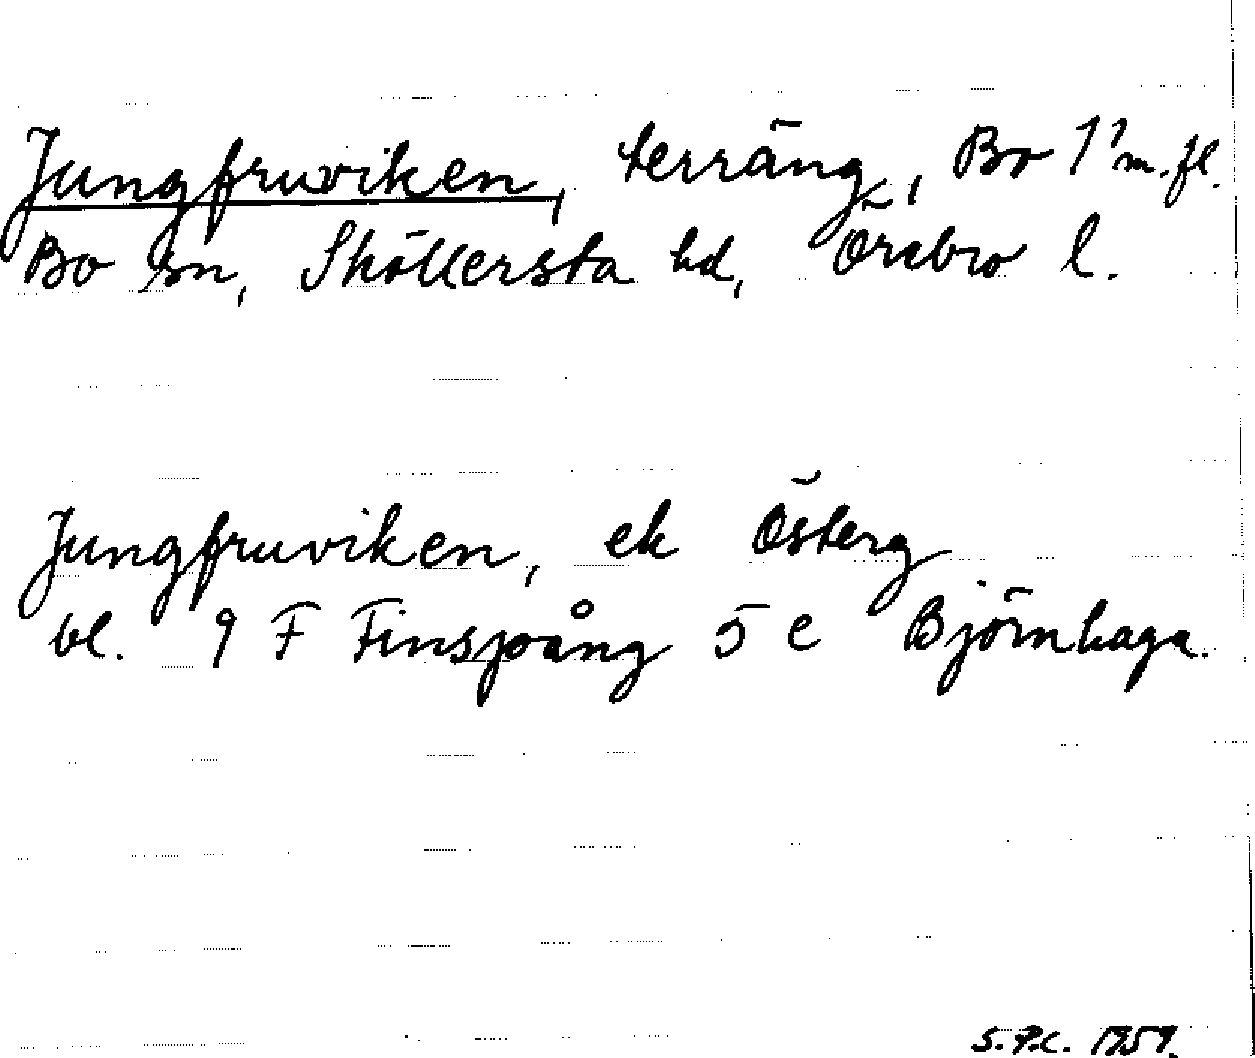 Jungfruviken, terräng, Bo 1¹ m. fl.
Bo sn, Sköllersta hd, Örebro l.
Jungfruviken, ek Österg
bl. 9 F Finspång 5 e Björnhaga.
S.P.C. 1959.